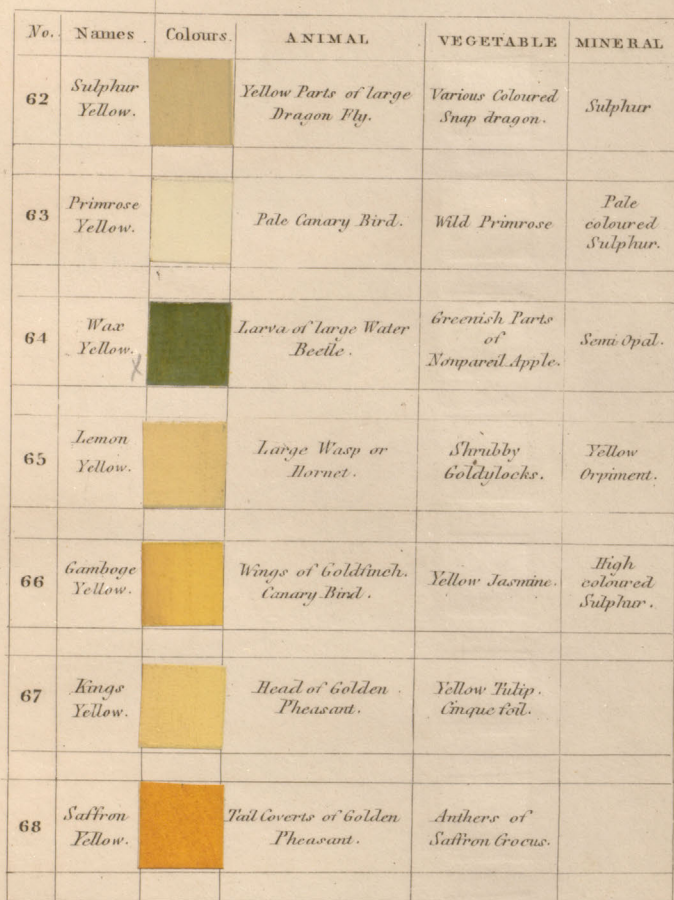 No. Names Colours. ANIMAL VEGETABLE MINERAL
62 Sulphur Yellow. Yellow Parts of large Dragon Fly. Various Coloured Snap dragon. Sulphur
63 Primrose Yellow. Pale Canary Bird. Wild Primrose Pale coloured Sulphur.
64 Wax Yellow. Larva of large Water Beetle. Greenish Parts of Nonpareil Apple. Semi Opal.
65 Lemon Yellow. Large Wasp or Hornet. Shrubby Goldylocks. Yellow Orpiment.
66 Gamboge Yellow. Wings of Goldfinch. Canary Bird. Yellow Jasmine. High coloured Sulphur.
67 Kings Yellow. Head of Golden Pheasant. Yellow Tulip. Cinque foil.
68 Saffron Yellow. Tail Coverts of Golden Pheasant. Anthers of Saffron Crocus.